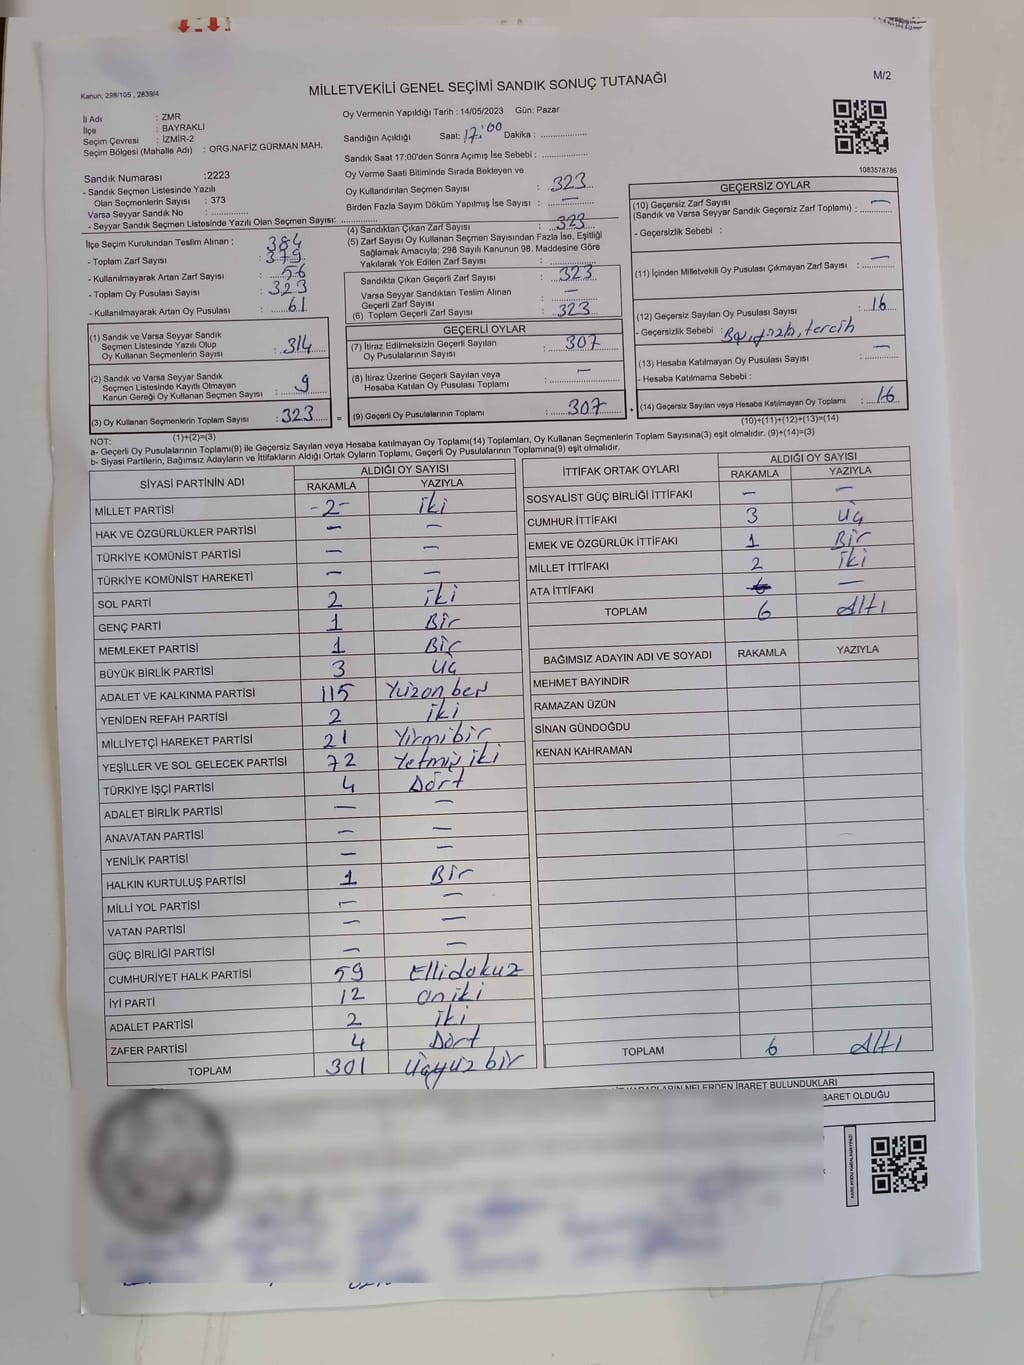 MİLLETVEKİLİ GENEL SEÇİMİ SANDIK SONUÇ TUTANAĞI
M/2
Kanun: 298/105 , 2839/4
İl Adı : ZMR
İlçe : BAYRAKLI
Seçim Çevresi : İZMİR-2
Seçim Bölgesi (Mahalle Adı) : ORG.NAFİZ GÜRMAN MAH.
Sandık Numarası :2223
- Sandık Seçmen Listesinde Yazılı
Olan Seçmenlerin Sayısı : 373
Varsa Seyyar Sandık No : ..............
- Seyyar Sandık Seçmen Listesinde Yazılı Olan Seçmen Sayısı: ..............
İlçe Seçim Kurulundan Teslim Alınan : 384
- Toplam Zarf Sayısı : 379
- Kullanılmayarak Artan Zarf Sayısı : 56
- Toplam Oy Pusulası Sayısı : 323
- Kullanılmayarak Artan Oy Pusulası : 61
(1) Sandık ve Varsa Seyyar Sandık
Seçmen Listesinde Yazılı Olup
Oy Kullanan Seçmenlerin Sayısı : 314
(2) Sandık ve Varsa Seyyar Sandık
Seçmen Listesinde Kayıtlı Olmayan
Kanun Gereği Oy Kullanan Seçmen Sayısı : 9
(3) Oy Kullanan Seçmenlerin Toplam Sayısı : 323 =
(1)+(2)=(3)
Oy Vermenin Yapıldığı Tarih : 14/05/2023 Gün: Pazar
Sandığın Açıldığı Saat: 17:00 Dakika : ..............
Sandık Saat 17:00'den Sonra Açımış İse Sebebi : ..............
Oy Verme Saati Bitiminde Sırada Bekleyen ve
Oy Kullandırılan Seçmen Sayısı : 323
Birden Fazla Sayım Döküm Yapılmış İse Sayısı : —
(4) Sandıktan Çıkan Zarf Sayısı : 323
(5) Zarf Sayısı Oy Kullanan Seçmen Sayısından Fazla İse, Eşitliği
Sağlamak Amacıyla; 298 Sayılı Kanunun 98. Maddesine Göre
Yakılarak Yok Edilen Zarf Sayısı : ..............
Sandıkta Çıkan Geçerli Zarf Sayısı : 323
Varsa Seyyar Sandıktan Teslim Alınan
Geçerli Zarf Sayısı : —
(6) Toplam Geçerli Zarf Sayısı : 323
GEÇERLİ OYLAR
(7) İtiraz Edilmeksizin Geçerli Sayılan
Oy Pusulalarının Sayısı : 307
(8) İtiraz Üzerine Geçerli Sayılan veya
Hesaba Katılan Oy Pusulası Toplamı : —
(9) Geçerli Oy Pusulalarının Toplamı : 307 +
1083578786
GEÇERSİZ OYLAR
(10) Geçersiz Zarf Sayısı
(Sandık ve Varsa Seyyar Sandık Geçersiz Zarf Toplamı) : —
- Geçersizlik Sebebi :
(11) İçinden Milletvekili Oy Pusulası Çıkmayan Zarf Sayısı : —
(12) Geçersiz Sayılan Oy Pusulası Sayısı : 16
- Geçersizlik Sebebi : tercih
(13) Hesaba Katılmayan Oy Pusulası Sayısı : —
- Hesaba Katılmama Sebebi :
(14) Geçersiz Sayılan veya Hesaba Katılmayan Oy Toplamı : 16
(10)+(11)+(12)+(13)=(14)
NOT:
a- Geçerli Oy Pusulalarının Toplamı(9) ile Geçersiz Sayılan veya Hesaba katılmayan Oy Toplamı(14) Toplamları, Oy Kullanan Seçmenlerin Toplam Sayısına(3) eşit olmalıdır. (9)+(14)=(3)
b- Siyasi Partilerin, Bağımsız Adayların ve İttifakların Aldığı Ortak Oyların Toplamı, Geçerli Oy Pusulalarının Toplamına(9) eşit olmalıdır.
SİYASİ PARTİNİN ADI ALDIĞI OY SAYISI
RAKAMLA YAZIYLA
MİLLET PARTİSİ -2- iki
HAK VE ÖZGÜRLÜKLER PARTİSİ — —
TÜRKİYE KOMÜNİST PARTİSİ — —
TÜRKİYE KOMÜNİST HAREKETİ — —
SOL PARTİ 2 iki
GENÇ PARTİ 1 Bir
MEMLEKET PARTİSİ 1 Bir
BÜYÜK BİRLİK PARTİSİ 3 üç
ADALET VE KALKINMA PARTİSİ 115 Yüzonbeş
YENİDEN REFAH PARTİSİ 2 iki
MİLLİYETÇİ HAREKET PARTİSİ 21 Yirmibir
YEŞİLLER VE SOL GELECEK PARTİSİ 72 Yetmiş iki
TÜRKİYE İŞÇİ PARTİSİ 4 Dört
ADALET BİRLİK PARTİSİ — —
ANAVATAN PARTİSİ — —
YENİLİK PARTİSİ — —
HALKIN KURTULUŞ PARTİSİ 1 Bir
MİLLİ YOL PARTİSİ — —
VATAN PARTİSİ — —
GÜÇ BİRLİĞİ PARTİSİ — —
CUMHURİYET HALK PARTİSİ 59 Ellidokuz
İYİ PARTİ 12 oniki
ADALET PARTİSİ 2 iki
ZAFER PARTİSİ 4 Dört
TOPLAM 301 üçyüz bir
İTTİFAK ORTAK OYLARI ALDIĞI OY SAYISI
RAKAMLA YAZIYLA
SOSYALİST GÜÇ BİRLİĞİ İTTİFAKI — —
CUMHUR İTTİFAKI 3 üç
EMEK VE ÖZGÜRLÜK İTTİFAKI 1 Bir
MİLLET İTTİFAKI 2 iki
ATA İTTİFAKI —
TOPLAM 6 Altı
BAĞIMSIZ ADAYIN ADI VE SOYADI RAKAMLA YAZIYLA
MEHMET BAYINDIR
RAMAZAN ÜZÜN
SİNAN GÜNDOĞDU
KENAN KAHRAMAN
TOPLAM 6 Altı
NELERDEN İBARET BULUNDUKLARI
İBARET OLDUĞU